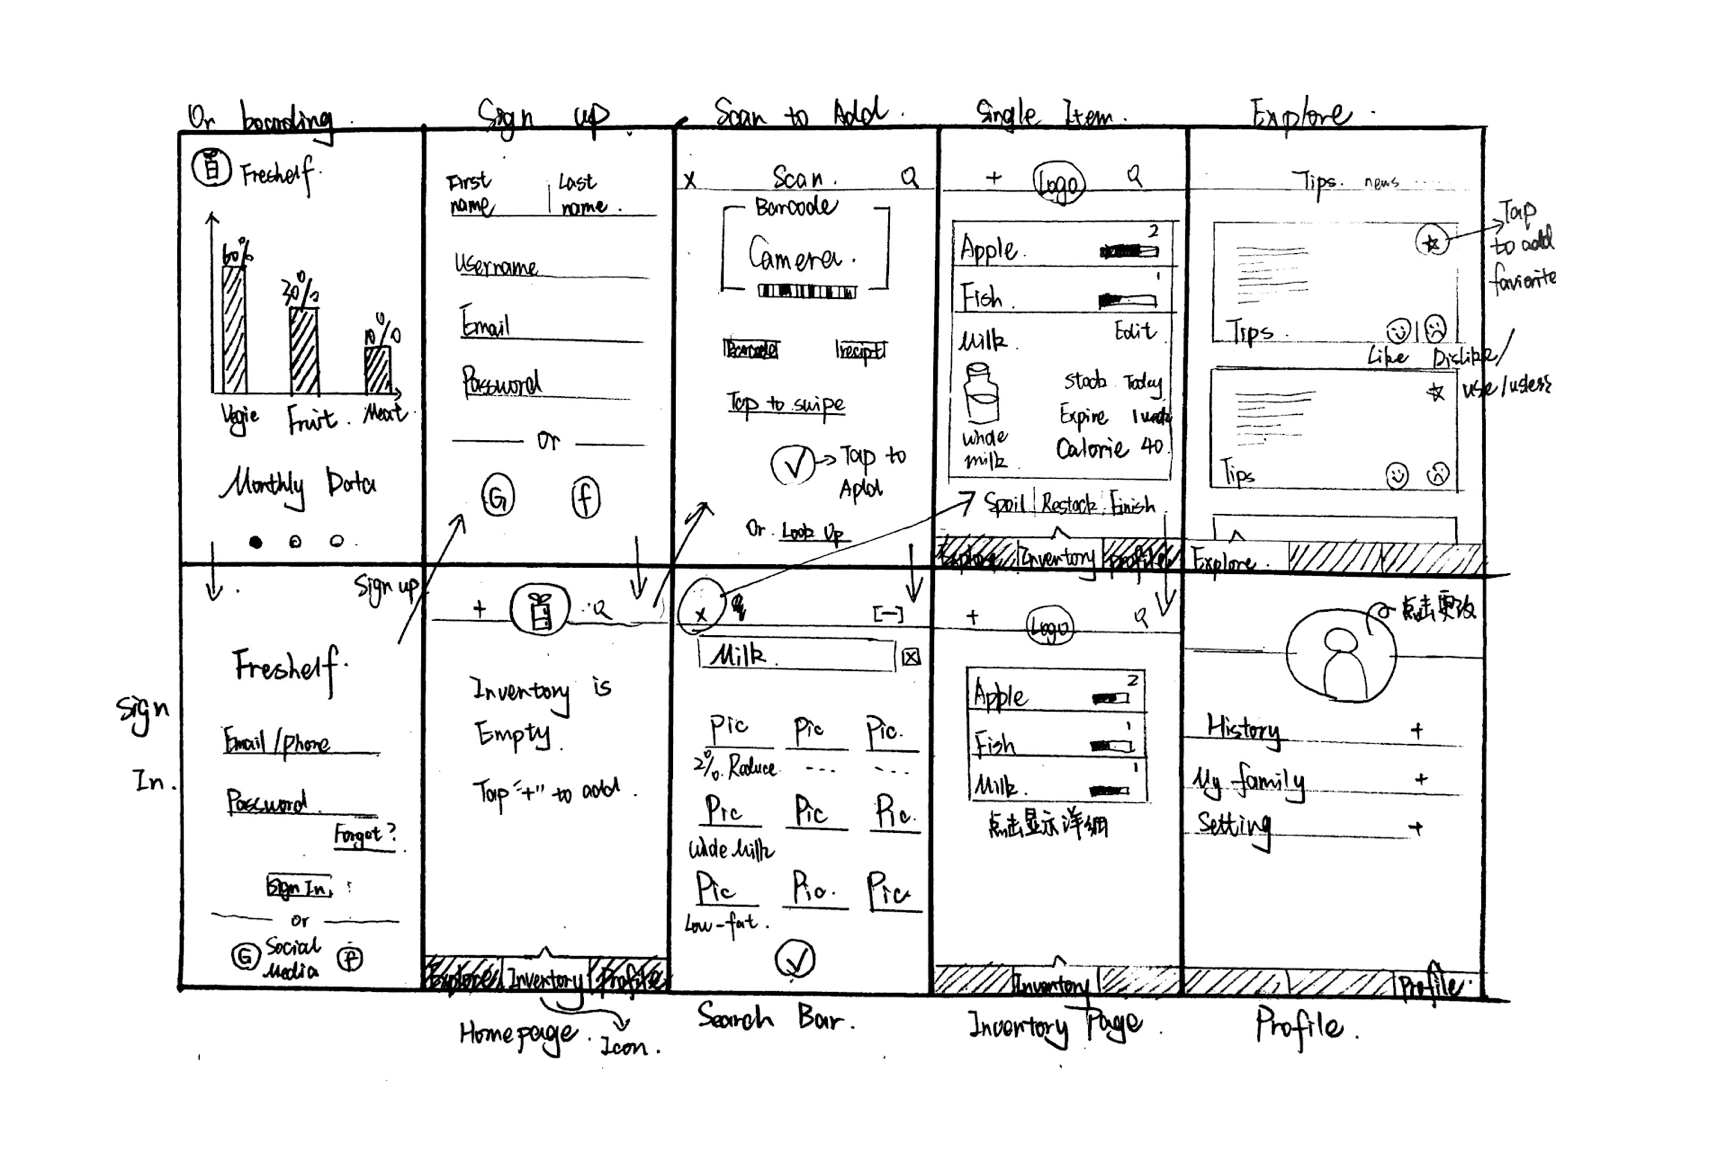 On boarding.
Freshelf.
60%
30%
10%
Vegie Fruit. Meat
Monthly Data
Sign up
First name
Last name.
Username
Email
Password
or
G f
Scan to Add.
x Scan.
Barcode
Camera.
Barcode recipt
Tap to swipe
Tap to Add
Or Look Up
Single Item.
+ Logo
Apple. 2
Fish 1
Milk. Edit
Stock Today
Expire 1 week
Calorie 40
whole milk
Spoil Restock Finish
Explore Inventory Profile
Explore.
Tips. news
Tap to add favorite
Tips.
Like Dislike/
Tips
Explore.
Sign In.
Sign up
Freshelf.
Email/phone
Password.
Forgot?
Sign In.
or
G Social Media f
+
Inventory is
Empty.
Tap "+" to add.
Explore Inventory Profile
Homepage.
Icon.
x [-]
Milk. x
Pic Pic Pic.
2% Reduce --- ---
Pic Pic Pic.
Pic Pic. Pic
Low-fat.
Search Bar.
+ Logo
Apple 2
Fish 1
Milk. 1
点击显示详细
Inventory
Inventory Page.
点击更改
History +
My family +
Setting +
Profile.
Profile.